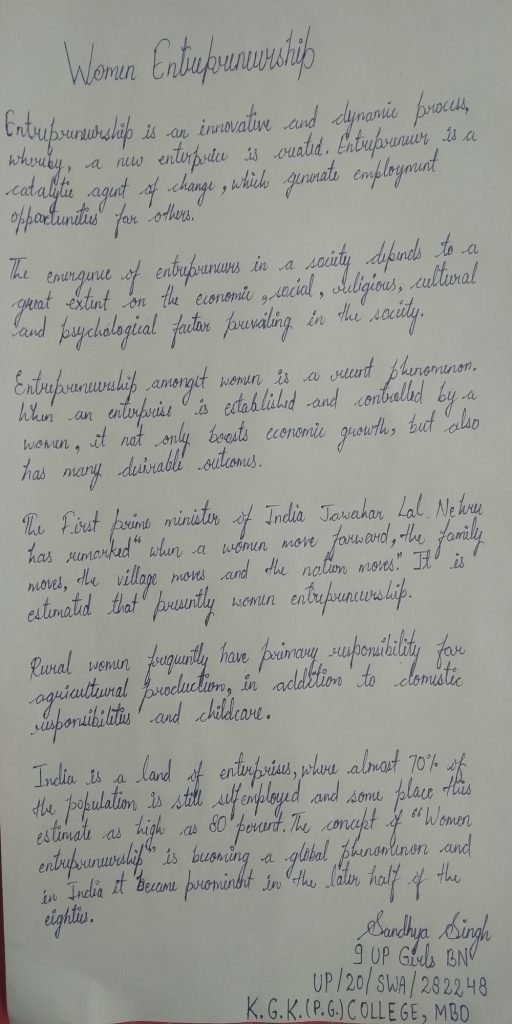 Women Entrepreneurship
Entrepreneurship is an innovative and dynamic process,
whereby, a new enterprise is created. Entrepreneur is a
catalytic agent of change, which generate employment
opportunities for others.
The emergence of entrepreneurs in a society depends to a
great extent on the economic, social, religious, cultural
and psychological factor prevailing in the society.
Entrepreneurship amongst women is a recent phenomenon.
When an enterprise is established and controlled by a
women, it not only boosts economic growth, but also
has many desirable outcomes.
The First prime minister of India Jawahar Lal Nehru
has remarked "when a women move forward, the family
moves, the village moves and the nation moves." It is
estimated that presently women entrepreneurship.
Rural women frequently have primary responsibility for
agricultural production, in addition to domestic
responsibilities and childcare.
India is a land of enterprises, where almost 70% of
the population is still self employed and some place this
estimate as high as 80 percent. The concept of "Women
entrepreneurship" is becoming a global phenomenon and
in India it became prominent in the later half of the
eighties.
Sandhya Singh
9 UP Girls BN
UP/20/SWA/282248
K.G.K.(P.G.)COLLEGE, MBD